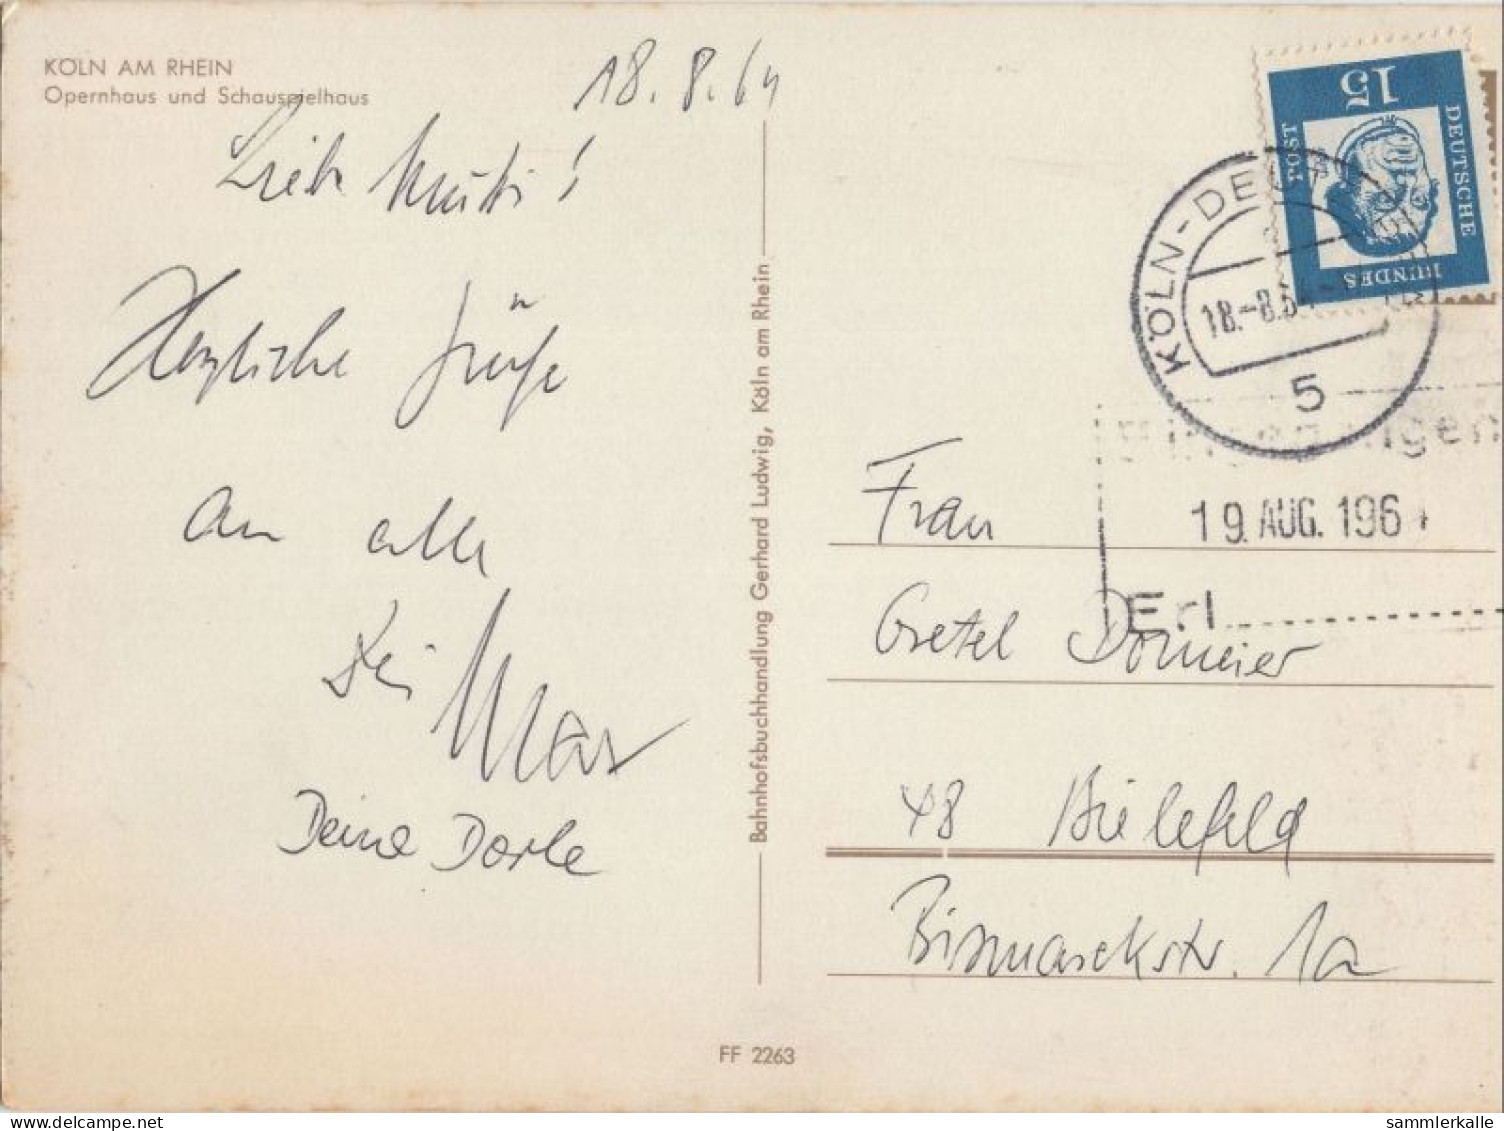 KÖLN AM RHEIN
Opernhaus und Schauspielhaus
18.8.64
Liebe Mutti!
Herzliche Grüße
an alle
Dein Max
Deine Dorle
Bahnhofsbuchhandlung Gerhard Ludwig, Köln am Rhein
FF 2263
15
DEUTSCHE
BUNDES
POST
KÖLN-DEUTZ
18.-8.64
5
19. AUG. 196
Erl.
Frau
Gretel Dormeier
48 Bielefeld
Bismarckstr. 1a
sammlerkalle